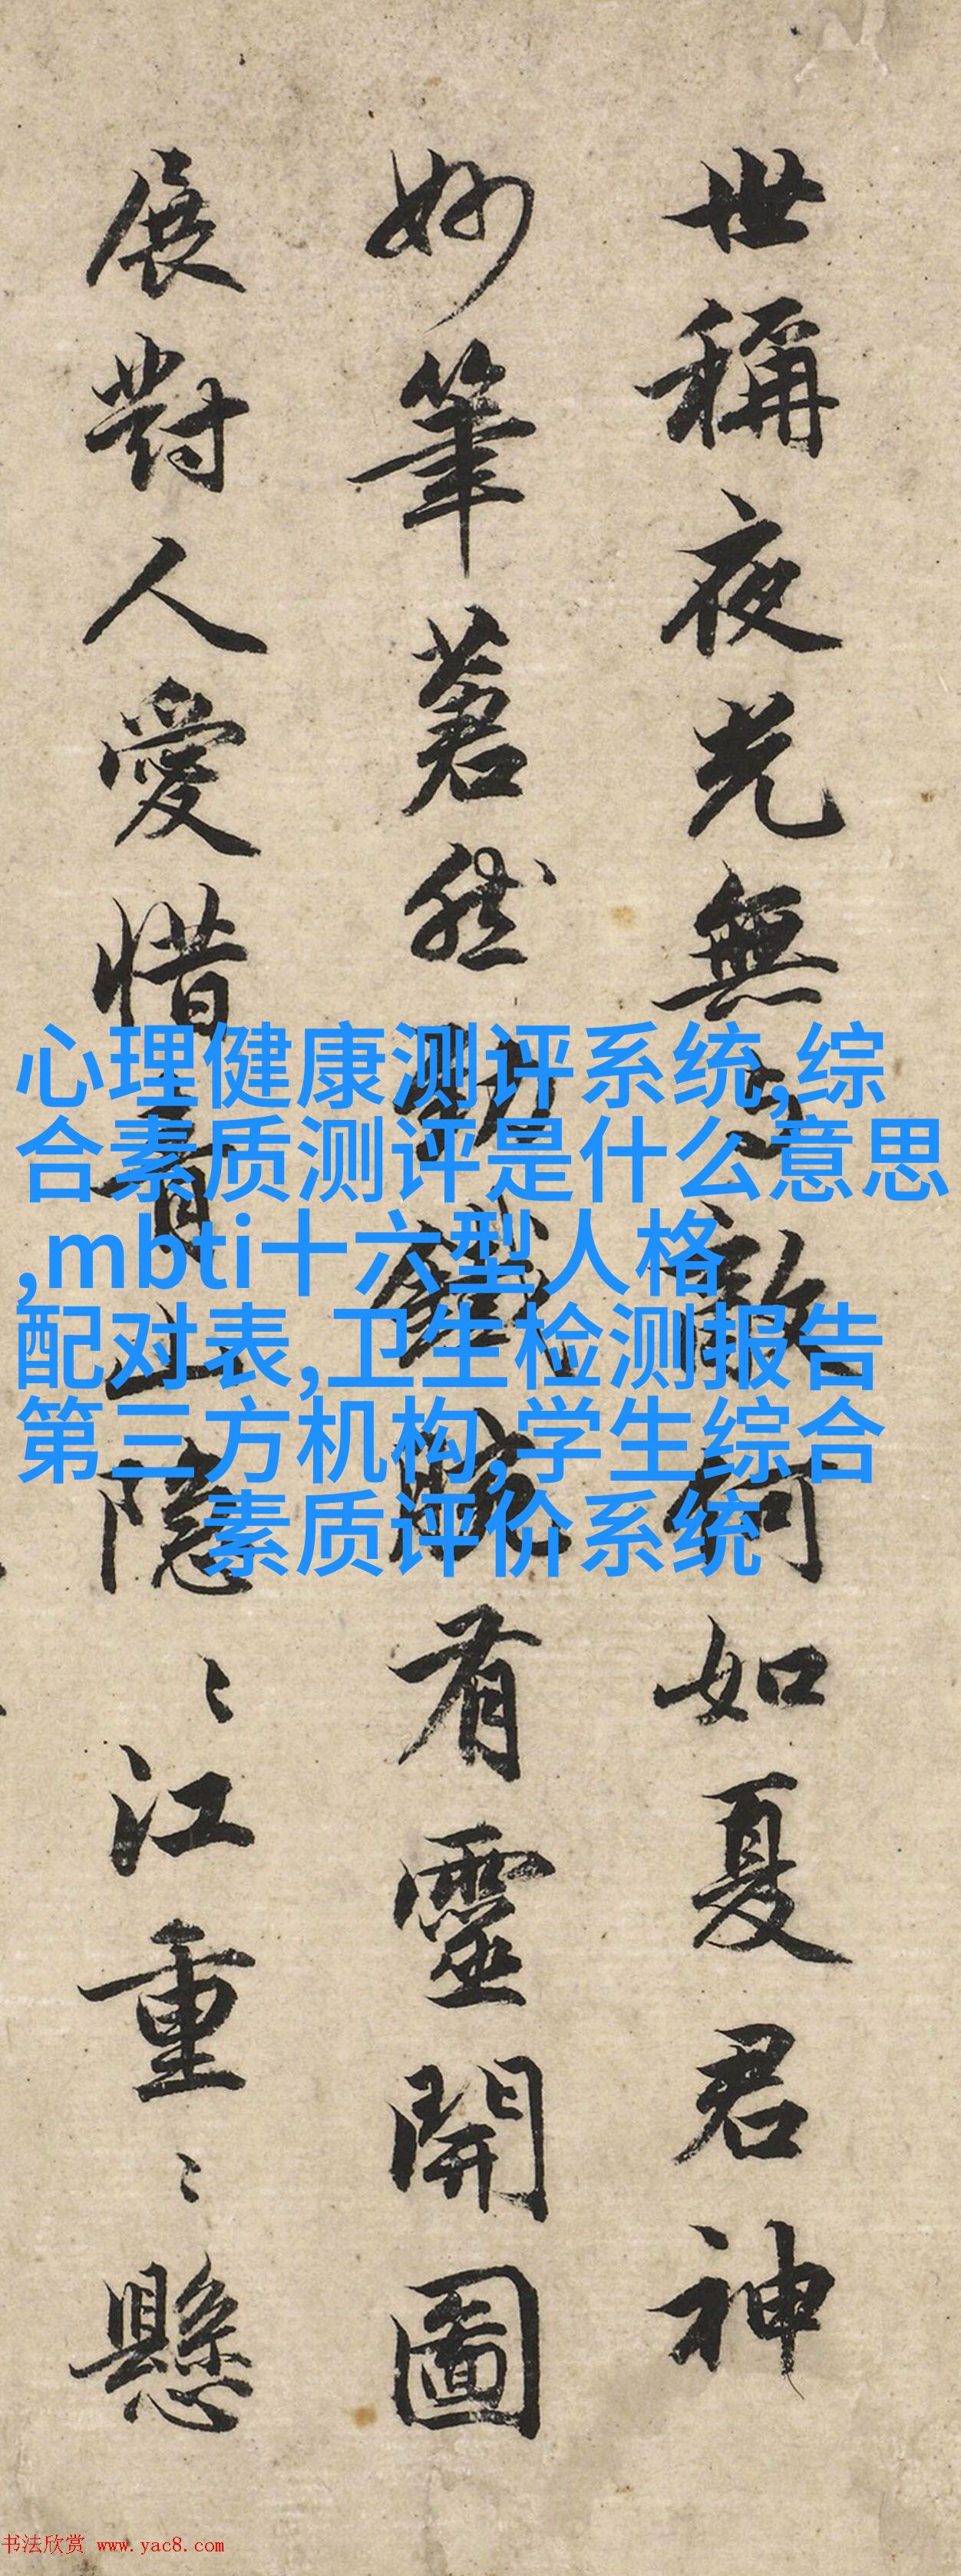 世稱夜光無与敵何如夏君神
妙筆著然勁鐵腕有靈開圖
展對人愛惜青山隱〻江重〻懸
心理健康测评系统,综
合素质测评是什么意思
,mbti十六型人格
配对表,卫生检测报告
第三方机构,学生综合
素质评价系统
书法欣赏 www.yac8.com